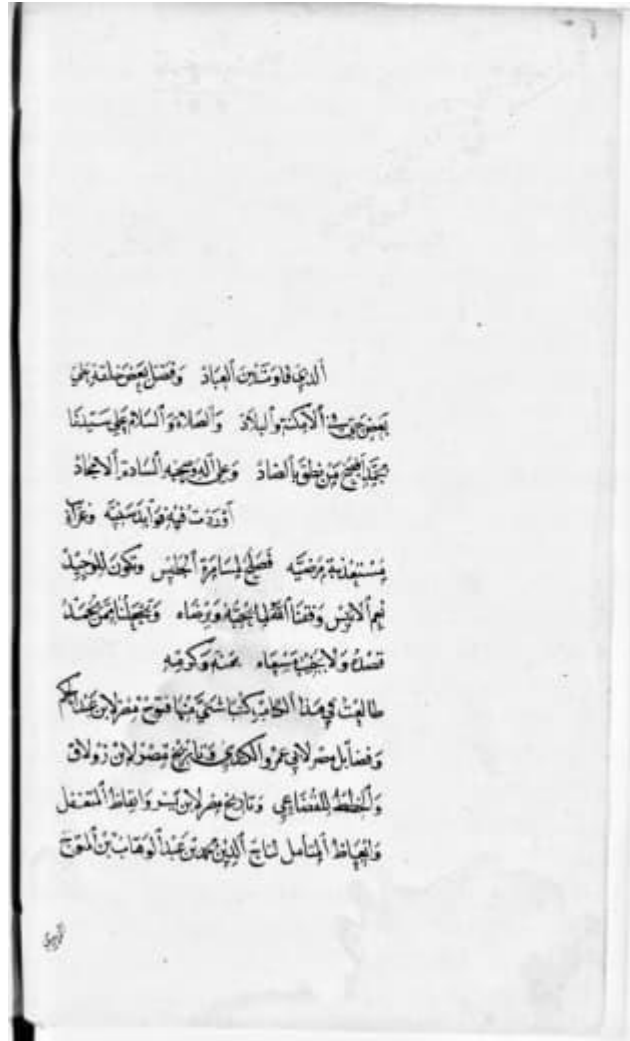 الذي فاوت بين العباد وفضل بعض خلقه على
بعض حتى في الأمكنة والبلاد والصلاة والسلام على سيدنا
محمد أفصح من نطق بالضاد وعلى آله وصحبه السادة الأمجاد
أوردت فيه فوايد سنية وغرائب
مستعذبة مرضية تصلح لمسامرة الجليس وتكون للوحيد
نعم الأنيس وفقنا الله لما يحبه ويرضاه ويجعلنا ممن يحمد
قصده ولا يخيب مسعاه بمنه وكرمه
طالعت في هذا الكتاب كتبا شتى منها فتوح مصر لابن عبد الحكم
وفضايل مصر لأبي عمر والكندي وتاريخ مصر لابن زولاق
والخطط للقضاعي وتاريخ مصر لابن ميسر وإيقاظ المتغفل
وإيعاظ المتأمل لتاج الدين محمد بن عبد الوهاب بن المتوج
الزبيري